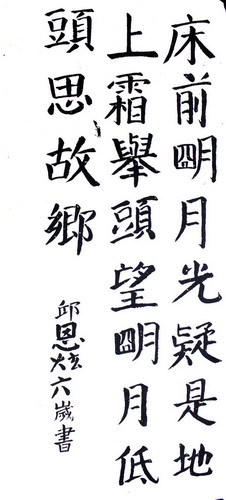 床前朙月光疑是地
上霜舉頭望朙月低
頭思故鄉
邱恩炫六歲書